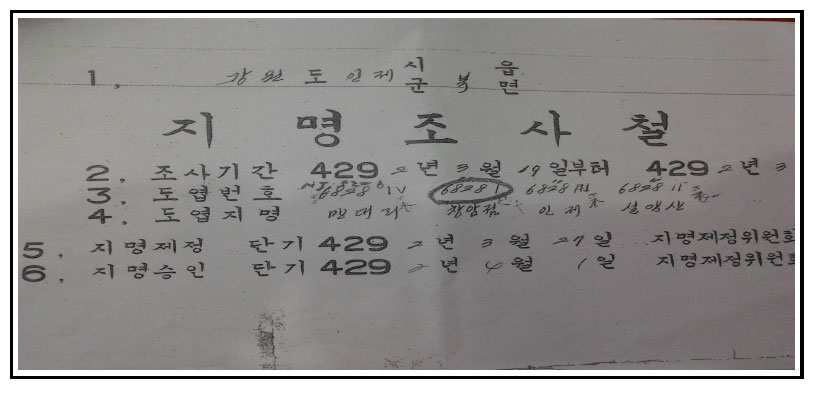 1, 강원도 인제 시군 북 읍면
지명조사철
2. 조사기간 4292년 3월 19일부터 4292년 3
3. 도엽번호 6828 IV 6828 I 6828 III 6828 II
4. 도엽지명 만대리 장암점 인제 설악산
5. 지명제정 단기 4292년 3월 27일 지명제정위원회
6. 지명승인 단기 4292년 4월 1일 지명제정위원회